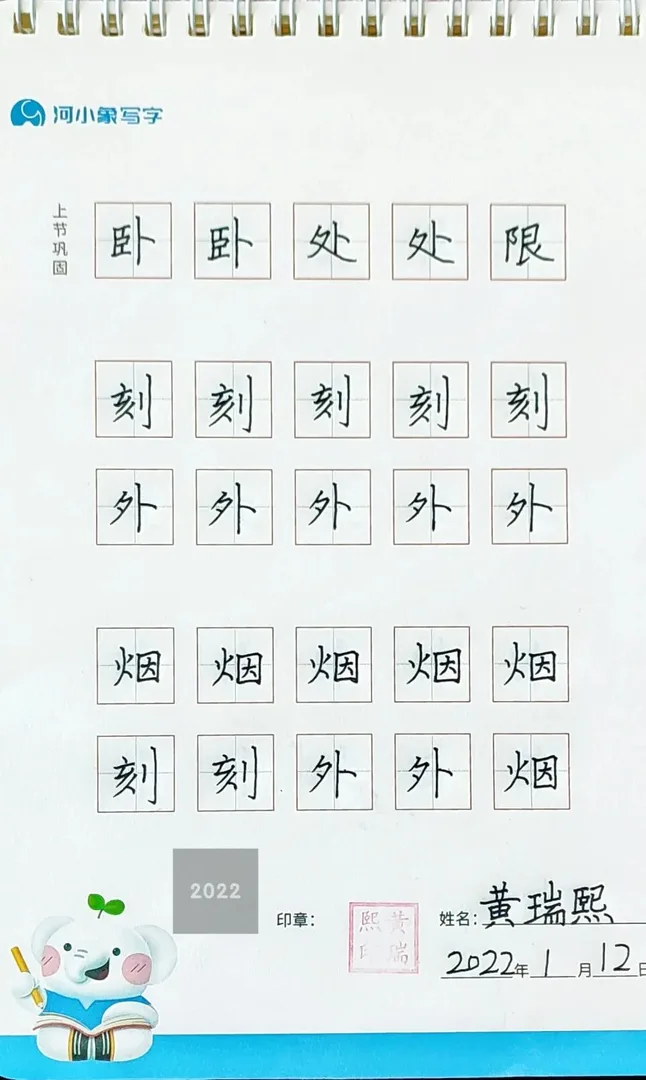 河小象写字
上节巩固
卧 卧 处 处 限
刻 刻 刻 刻 刻
外 外 外 外 外
烟 烟 烟 烟 烟
刻 刻 外 外 烟
2022
印章: 黄瑞熙印 姓名: 黄瑞熙
2022年1月12日